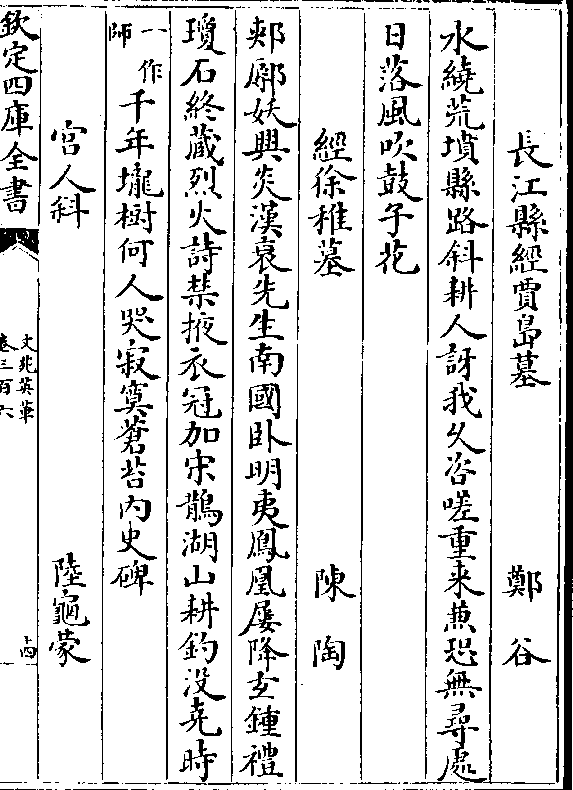 長江縣經賈島墓　鄭谷
水繞荒墳縣路斜耕人訝我久咨嗟重來兼恐無尋處
日落風吹鼓子花
經徐稚墓　陳陶
郟鄏妖興炎漢衰先生南國臥明夷鳳凰屢降玄纁禮
瓊石終藏烈火詩禁掖衣冠加宋鵲湖山耕釣没堯時
一作師千年壠樹何人哭寂寞蒼苔内史碑
宮人斜　陸龜蒙
欽定四庫全書
文苑英華
卷三百六
十四